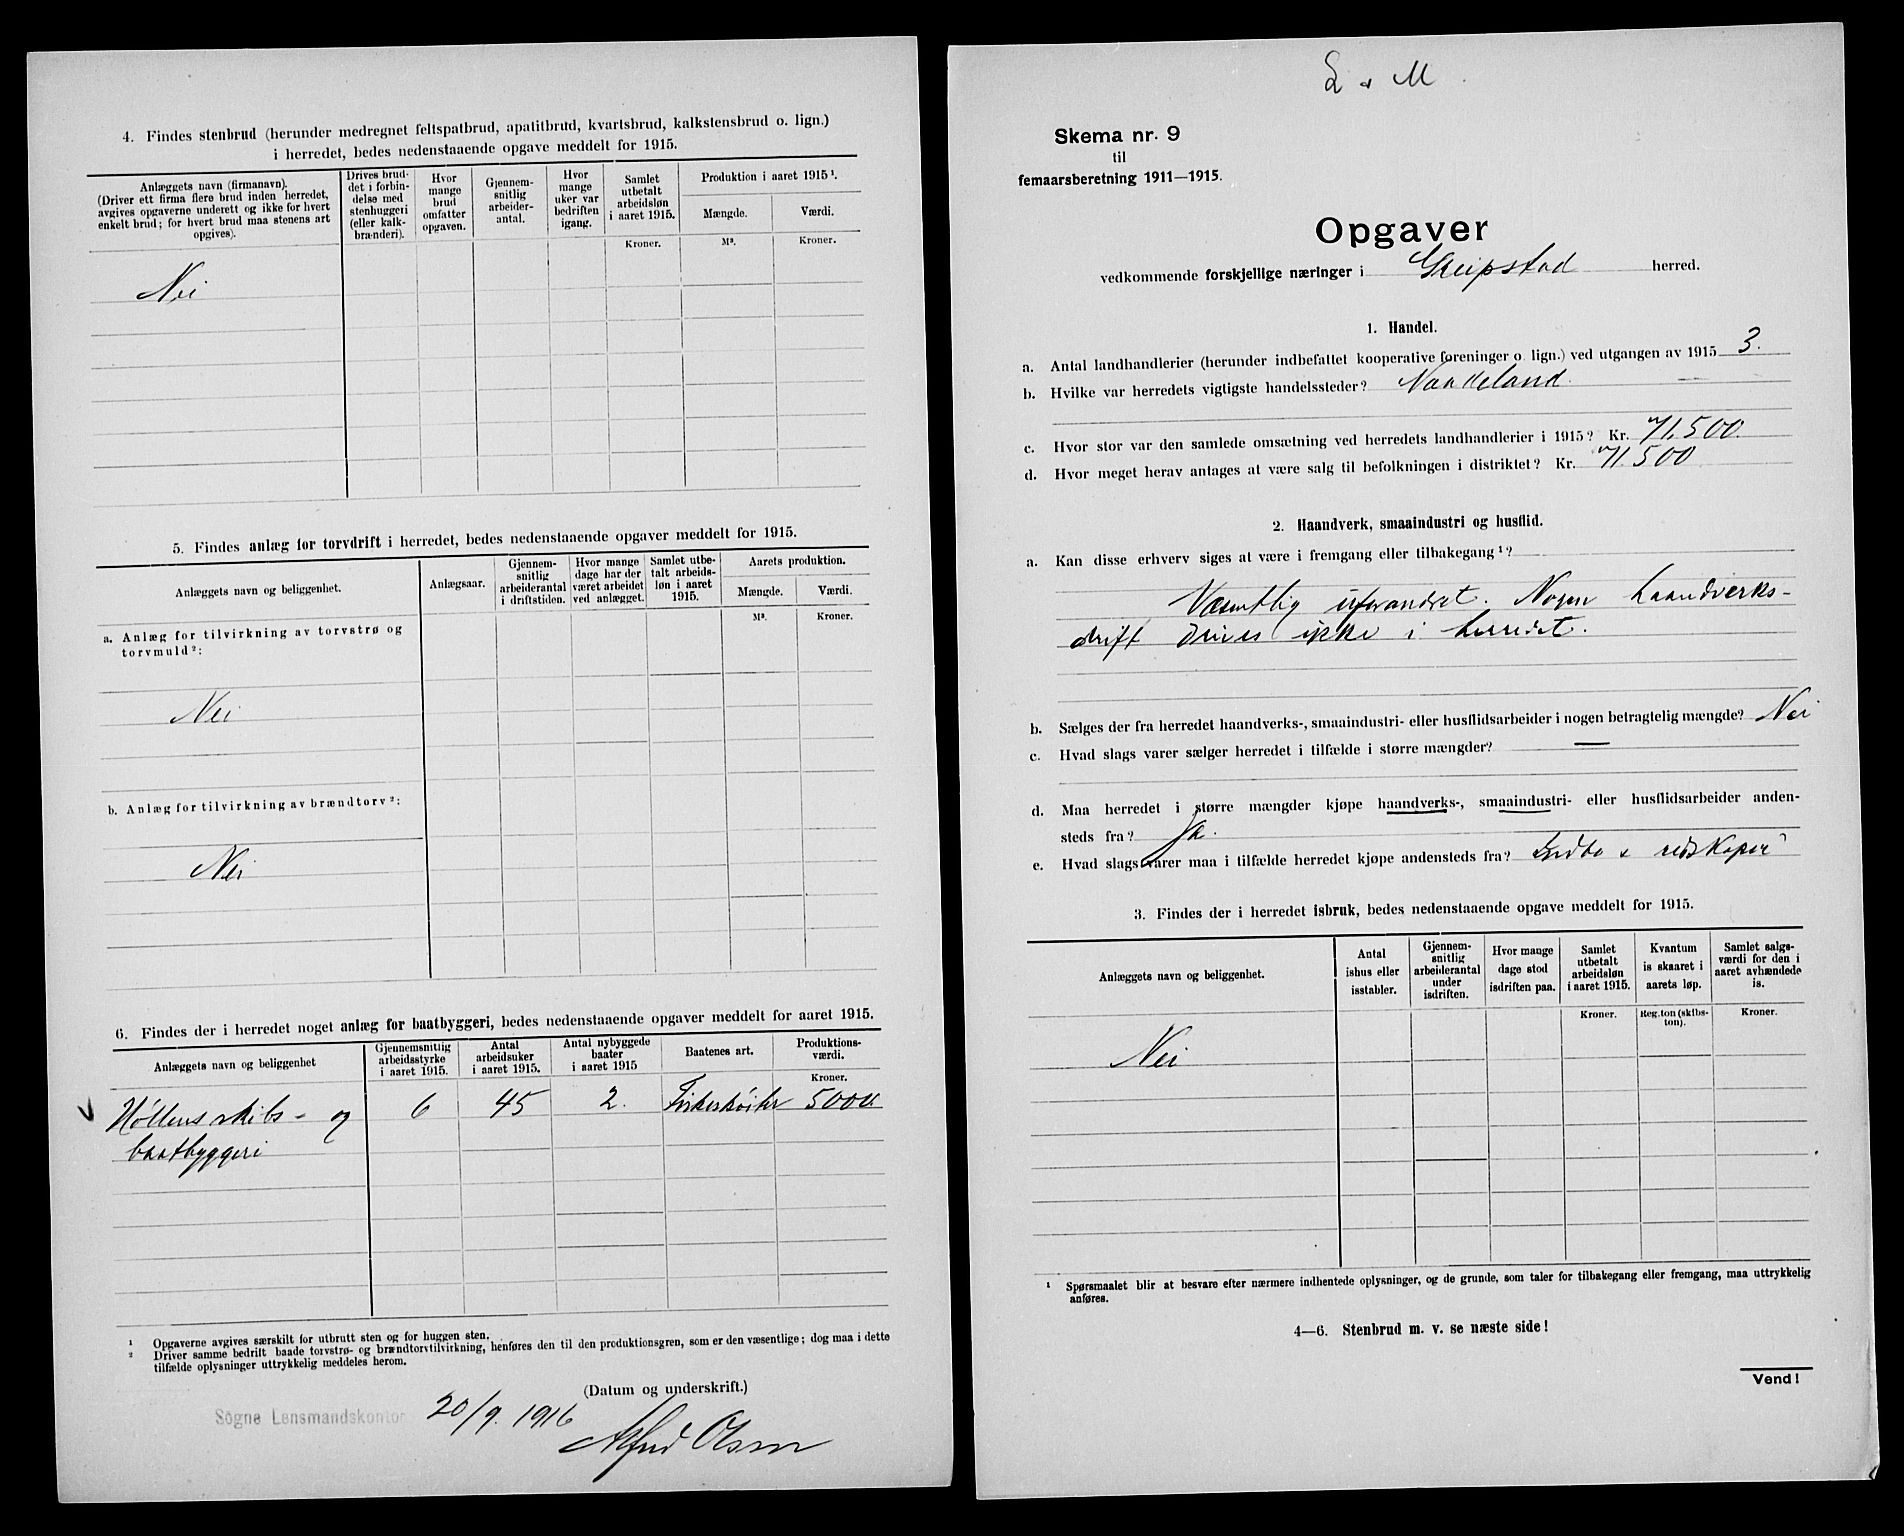 4. Findes stenbrud (herunder medregnet feltspatbrud, apatitbrud, kvartsbrud, kalkstensbrud o. lign.)
i herredet, bedes nedenstaaende opgave meddelt for 1915.
Anlæggets navn (firmanavn).
(Driver ett firma flere brud inden herredet,
avgives opgaverne underett og ikke for hvert
enkelt brud; for hvert brud maa stenens art
opgives).
Drives brud-
det i forbin-
delse med
stenhuggeri
(eller kalk-
brænderi).
Hvor
mange
brud
omfatter
opgaven.
Gjennem-
snitlig
arbeider-
antal.
Hvor
mange
uker var
bedriften
igang.
Samlet
utbetalt
arbeidsløn
i aaret 1915.
Kroner.
Produktion i aaret 1915¹.
Mængde.
M³.
Værdi.
Kroner.
Nei
5. Findes anlæg for torvdrift i herredet, bedes nedenstaaende opgaver meddelt for 1915.
Anlæggets navn og beliggenhet.
Anlægsaar.
Gjennem-
snitlig
arbeiderantal
i driftstiden.
Hvor mange
dage har der
været arbeidet
ved anlægget.
Samlet utbe-
talt arbeids-
løn i aaret
1915.
Aarets produktion.
Mængde.
M³.
Værdi.
Kroner.
a. Anlæg for tilvirkning av torvstrø og
torvmuld²:
Nei
b. Anlæg for tilvirkning av brændtorv²:
Nei
6. Findes der i herredet noget anlæg for baatbyggeri, bedes nedenstaaende opgaver meddelt for aaret 1915.
Anlæggets navn og beliggenhet
Gjennemsnitlig
arbeidsstyrke
i aaret 1915.
Antal
arbeidsuker
i aaret 1915.
Antal nybyggede
baater
i aaret 1915
Baatenes art.
Produktions-
værdi.
Kroner.
Höllens skibs- og 6 45 2. Fiskeskøiter 5000.
baatbyggeri
¹ Opgaverne avgives særskilt for utbrutt sten og for huggen sten.
² Driver samme bedrift baade torvstrø- og brændtorvtilvirkning, henføres den til den produktionsgren, som er den væsentlige; dog maa i dette
tilfælde oplysninger uttrykkelig meddeles herom.
(Datum og underskrift.)
Søgne Lensmandskontor
20/9. 1916
Alfred Olsen
L & M.
Skema nr. 9
til
femaarsberetning 1911—1915.
Opgaver
vedkommende forskjellige næringer i Greipstad herred.
1. Handel.
a. Antal landhandlerier (herunder indbefattet kooperative foreninger o. lign.) ved utgangen av 1915 3.
b. Hvilke var herredets vigtigste handelssteder? Naadeland.
c. Hvor stor var den samlede omsætning ved herredets landhandlerier i 1915? Kr. 71.500.
d. Hvor meget herav antages at være salg til befolkningen i distriktet? Kr. 71.500
2. Haandverk, smaaindustri og husflid.
a. Kan disse erhverv siges at være i fremgang eller tilbakegang¹?
Væsentlig uforandret. Nogen haandverks-
drift drives ikke i herredet.
b. Sælges der fra herredet haandverks-, smaaindustri- eller husflidsarbeider i nogen betragtelig mængde? Nei
c. Hvad slags varer sælger herredet i tilfælde i større mængder? —
d. Maa herredet i større mængder kjøpe haandverks-, smaaindustri- eller husflidsarbeider anden-
steds fra? Ja.
e. Hvad slags varer maa i tilfælde herredet kjøpe andensteds fra? Indbo & redskaper
3. Findes der i herredet isbruk, bedes nedenstaaende opgave meddelt for 1915.
Anlæggets navn og beliggenhet.
Antal
ishus eller
isstabler.
Gjennem-
snitlig
arbeiderantal
under
isdriften.
Hvor mange
dage stod
isdriften paa.
Samlet
utbetalt
arbeidsløn
i aaret 1915.
Kroner.
Kvantum
is skaaret i
aarets løp.
Reg.ton (skibs-
ton).
Samlet salgs-
værdi for den i
aaret avhændede
is.
Kroner.
Nei
¹ Spørsmaalet blir at besvare efter nærmere indhentede oplysninger, og de grunde, som taler for tilbakegang eller fremgang, maa uttrykkelig
anføres.
4—6. Stenbrud m. v. se næste side!
Vend!